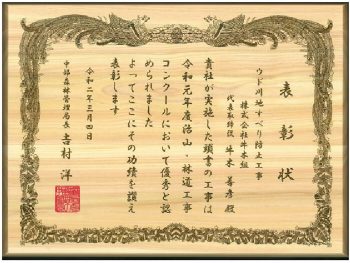 表彰状
ウド川地すべり防止工事
株式会社牛木組
代表取締役 牛木 善彦 殿
貴社が実施した頭書の工事は
令和元年度治山・林道工事
コンクールにおいて優秀と認
められました
よってここにその功績を讃え
表彰します
令和二年三月四日
中部森林管理局長 吉村 洋